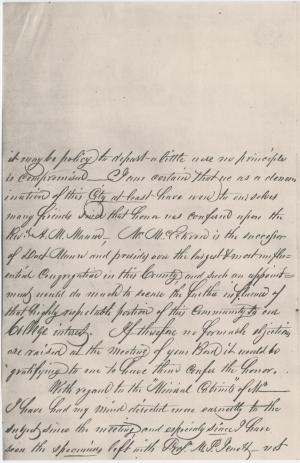 it may be policy to depart a little were no principles
is compromised — I am certain that we as a denom
ination of this City at least have won to ourselves
many friends since that honor was confered upon the
Rev. A. M. Mann, Mr. Mc is the successor
of Doct Mann and presides over the largest & most influ
ential Congregation in this County and such an appoint
ment would do much to secure the further influence of
that highly respectable portion of this Community to our
College interest. If therefore no formable objections
are raised at the meeting of your Board it would be
gratifying to me to have them confer the honor.
With regard to the "Mineral Cabinet of
I have had my mind directed more earnestly to the
subject since the meeting and especialy since I have
seen the specimens left with Prof. M. P. not